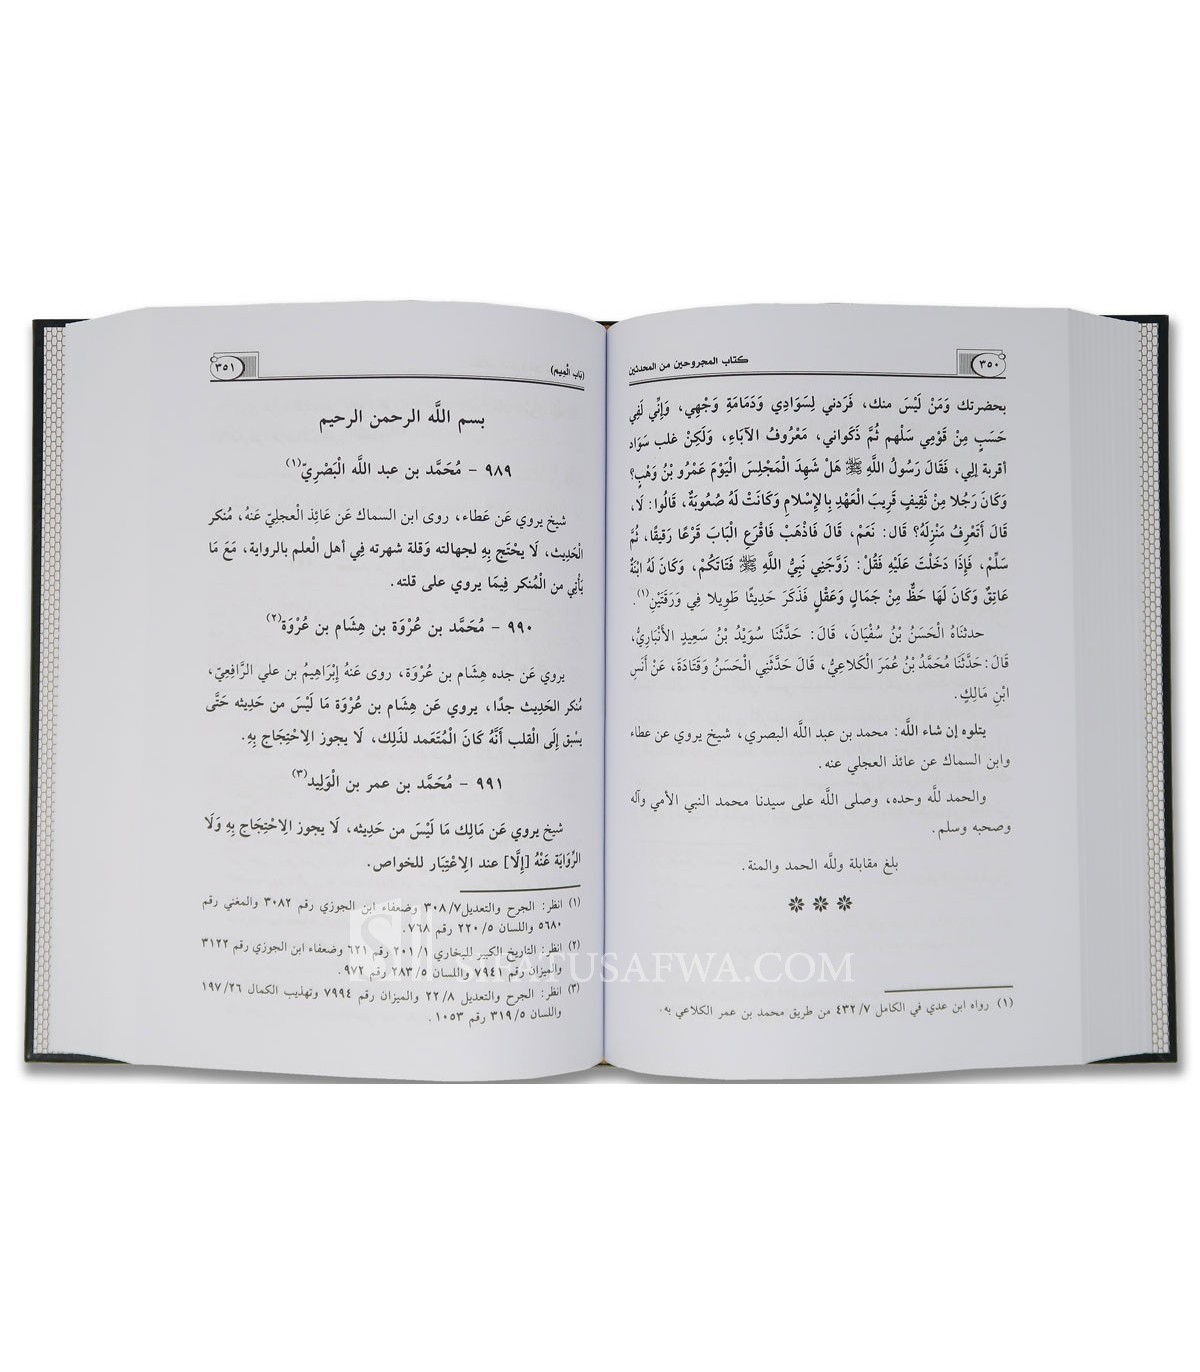 ٣٥٠
كتاب المجروحين من المحدثين
بحضرتك وَمَنْ لَيْسَ منك، فَرَدني لِسَوَادِي وَدَمَامَةِ وَجْهِي، وَإِنِّي لَفِي
حَسَبٍ مِنْ قَوْمِي سَلْهم ثُمَّ ذَكواني، مَعْرُوفُ الآبَاءِ، وَلَكِنْ غلب سَوَاد
أقربة إلي، فَقَالَ رَسُولُ اللَّهِ ﷺ هَلْ شَهِدَ الْمَجْلِسَ الْيَوْمَ عَمْرُو بْنُ وَهْبٍ؟
وَكَانَ رَجُلا مِنْ ثَقِيفٍ قَرِيبَ الْعَهْدِ بِالإِسْلامِ وَكَانَتْ لَهُ صُعُوبَةٌ، قَالُوا: لَا،
قَالَ أَتَعْرِفُ مَنْزِلَهُ؟ قال: نَعَمْ، قَالَ فَاذْهَبْ فَاقْرَعِ الْبَابَ قَرْعًا رَقِيقًا، ثُمَّ
سَلِّمْ، فَإِذَا دَخَلْتَ عَلَيْهِ فَقُلْ: زَوَّجَنِي نَبِيُّ اللَّهِ ﷺ فَتَاتَكُمْ، وَكَانَ لَهُ ابْنَةٌ
عَاتِقٌ وَكَانَ لَهَا حَظٌّ مِنْ جَمَالٍ وَعَقْلٍ فَذَكَرَ حَدِيثًا طَوِيلا فِي وَرَقَتَيْنِ(١).
حدثناهُ الْحَسَنُ بْنُ سُفْيَانَ، قَالَ: حَدَّثَنَا سُوَيْدُ بْنُ سَعِيدٍ الأَنْبَارِيُّ،
قَالَ: حَدَّثَنَا مُحَمَّدُ بْنُ عُمَرَ الْكَلاعِيُّ، قَالَ حَدَّثَنِي الْحَسَنُ وَقَتَادَةَ، عَنْ أَنَسِ
ابْنِ مَالِكٍ.
يتلوه إن شاء اللَّه: محمد بن عبد اللَّه البصري، شيخ يروي عن عطاء
وابن السماك عن عائذ العجلي عنه.
والحمد للَّه وحده، وصلى اللَّه على سيدنا محمد النبي الأمي وآله
وصحبه وسلم.
بلغ مقابلة وللَّه الحمد والمنة.
(١) رواه ابن عدي في الكامل ٧/ ٤٣٢ من طريق محمد بن عمر الكلاعي به.
(بَاب الْمِيم)
٣٥١
بسم اللَّه الرحمن الرحيم
٩٨٩ - مُحَمَّد بن عبد اللَّه الْبَصْرِيّ(١)
شيخ يروي عَن عَطاء، روى ابن السماك عَن عَائِذ الْعجلِيّ عَنهُ، مُنكر
الْحَدِيث، لَا يحْتَج بِهِ لجهالته وَقلة شهرته فِي أهل الْعلم بالرواية، مَعَ مَا
يَأْتِي من الْمُنكر فِيمَا يروي على قلته.
٩٩٠ - مُحَمَّد بن عُرْوَة بن هِشَام بن عُرْوَة(٢)
يروي عَن جده هِشَام بن عُرْوَة، روى عَنهُ إِبْرَاهِيمُ بن علي الرَّافِعِيّ،
مُنكر الحَدِيث جدًا، يروي عَن هِشَام بن عُرْوَة مَا لَيْسَ من حَدِيثه حَتَّى
يسْبق إِلَى الْقلب أَنَّهُ كَانَ الْمُتَعَمد لذَلِك، لَا يجوز الِاحْتِجَاج بِهِ.
٩٩١ - مُحَمَّد بن عمر بن الْوَلِيد(٣)
شيخ يروي عَن مَالِك مَا لَيْسَ من حَدِيثه، لَا يجوز الِاحْتِجَاج بِهِ وَلَا
الرِّوَايَة عَنْهُ [إِلَّا] عند الِاعْتِبَار للخواص.
(١) انظر: الجرح والتعديل٧/ ٣٠٨ وضعفاء ابن الجوزي رقم ٣٠٨٢ والمغني رقم
٥٦٨٠ واللسان ٥/ ٢٢٠ رقم ٧٦٨.
(٢) انظر: التاريخ الكبير للبخاري ١/ ٢٠١ رقم ٦٢١ وضعفاء ابن الجوزي رقم ٣١٢٢
والميزان رقم ٧٩٤١ واللسان ٥/ ٢٨٣ رقم ٩٧٢.
(٣) انظر: الجرح والتعديل ٨/ ٢٢ والميزان رقم ٧٩٩٤ وتهذيب الكمال ٢٦/ ١٩٧
واللسان ٥/ ٣١٩ رقم ١٠٥٣.
SIFATUSAFWA.COM